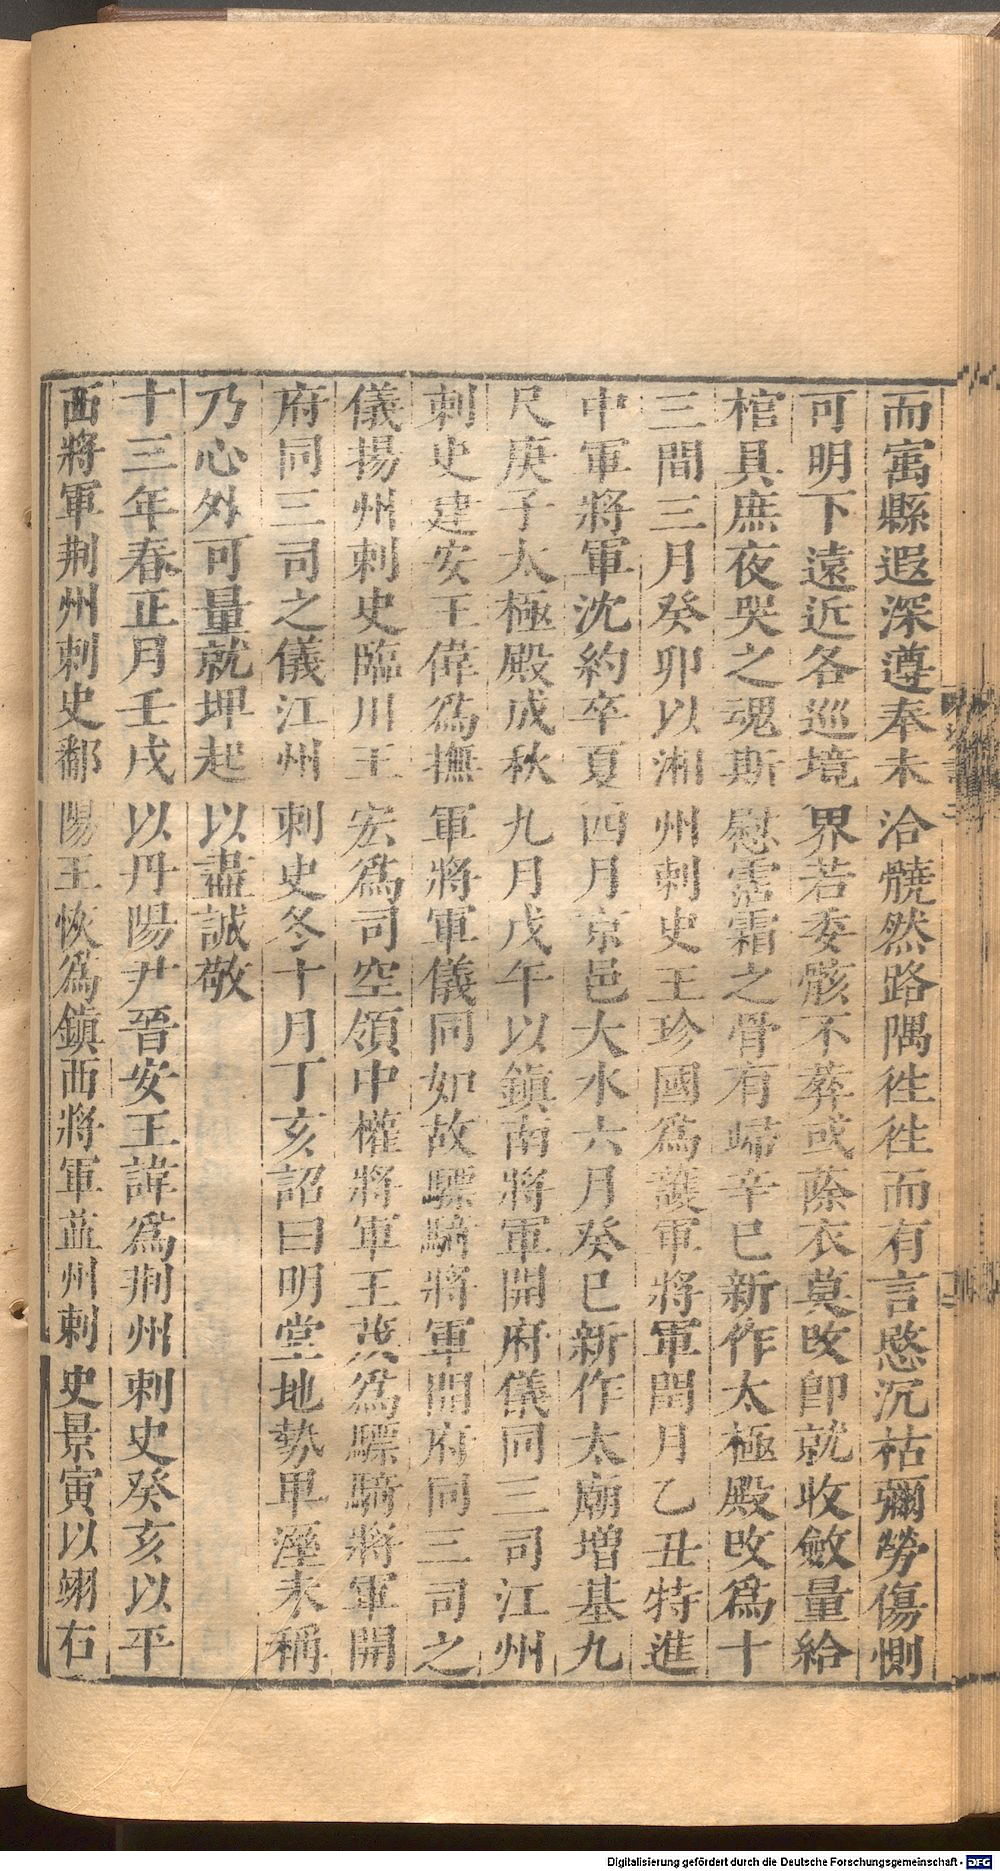 而寓縣遐深遵奉未洽髐然路隅徃徃而有言愍沉枯彌勞傷惻
可明下遠近各巡境界若委骸不葬或蒢衣莫改即就收斂量給
棺具庶夜哭之魂斯慰霑霜之骨有歸辛巳新作太極殿改爲十
三間三月癸卯以湘州刺史王珍國爲護軍將軍閏月乙丑特進
中軍將軍沈約卒夏四月京邑大水六月癸巳新作太廟增基九
尺庚子太極殿成秋九月戊午以鎮南將軍開府儀同三司江州
刺史建安王偉爲撫軍將軍儀同如故驃騎將軍開府同三司之
儀揚州刺史臨川王宏爲司空領中權將軍王茂爲驃騎將軍開
府同三司之儀江州刺史冬十月丁亥詔曰明堂地勢卑溼未稱
乃心外可量就埤起以盡誠敬
十三年春正月壬戌以丹陽尹晉安王諱爲荆州刺史癸亥以平
西將軍荆州刺史鄱陽王恢爲鎮西將軍益州刺史景寅以翊右
Digitalisierung gefördert durch die Deutsche Forschungsgemeinschaft - DFG